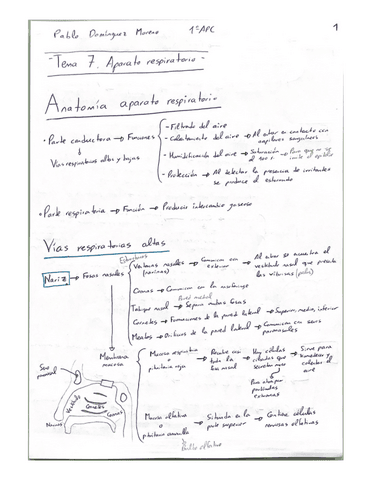 Pablo Domínguez Moreno 1ºAPC 1
- Tema 7. Aparato respiratorio -
Anatomía aparato respiratorio
• Parte conductora → Funciones
Vías respiratorias altas y bajas
- Filtrado del aire
- Calentamiento del aire → Al estar en contacto con capilares sanguíneos
- Humidificación del aire → Saturación
- Protección → Al detectar la presencia de irritantes se produce el estornudo
• Parte respiratoria → Función → Producir intercambio gaseoso
Vías respiratorias altas
Estructuras
Nariz → Fosas nasales
Ventanas nasales (narinas) → Comunican con exterior → Al entrar se encuentra el vestíbulo nasal que presenta las vibrisas (pelos)
Coanas → Comunican con la nasofaringe
Pared medial
Tabique nasal → Separa ambas fosas
Cornetes → Formaciones de la pared lateral → Superior, medio, inferior
Meatos → Orificios de la pared lateral → Comunican con senos paranasales
Membrana mucosa
Mucosa respiratoria
pituitaria roja → Recubre casi toda la fosa nasal → Hay células ciliadas que secretan moco → Sirve para humedecer y calentar el aire
Para atrapar partículas extrañas
Mucosa olfativa o pituitaria amarilla → Situada en la parte superior → Contiene células nerviosas olfativas
Bulbo olfativo
Seno
Vestíbulo
Cornetes
Coanas
Narinas